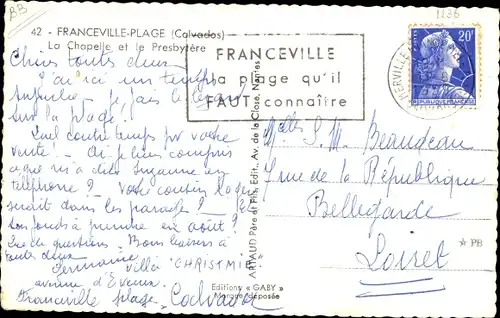 BB
1136
42 - FRANCEVILLE-PLAGE (Calvados)
La Chapelle et le Presbytère
FRANCEVILLE
la plage qu'il
FAUT connaître
20F
POSTES
REPUBLIQUE FRANÇAISE
MERVILLE
Chères toutes deux
J'ai ici un temps
superbe. Je fais le
sur la plage.
Quel temps pour votre
vente ! Ai je bien compris
ce que m'a dit Suzanne au
téléphone ? Votre cousin
serait dans les parages ?
à prendre en août ?
Que de questions. Bons baisers à
toutes deux
Germaine
villa "CHRISTMI
avenue d'Evreux
Franceville plage Calvados
Melles S. M. Beaudeau
rue de la République
Bellegarde
Loiret
PB
ARTAUD Père et Fils, Edit., Av. de la Close, Nantes
Editions « GABY »
Marque déposée